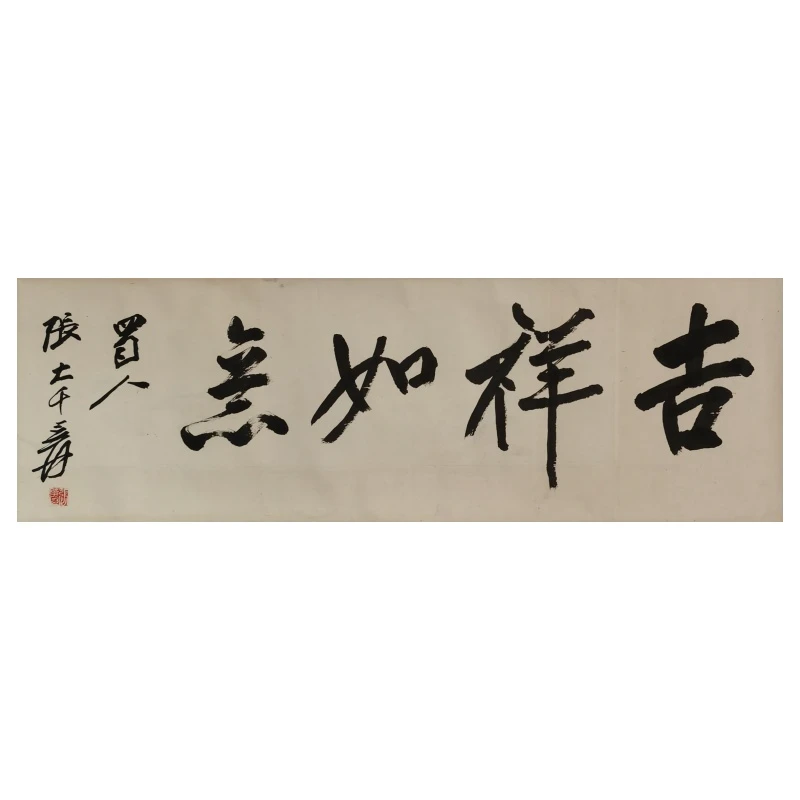 吉祥如意
蜀人
張大千爰